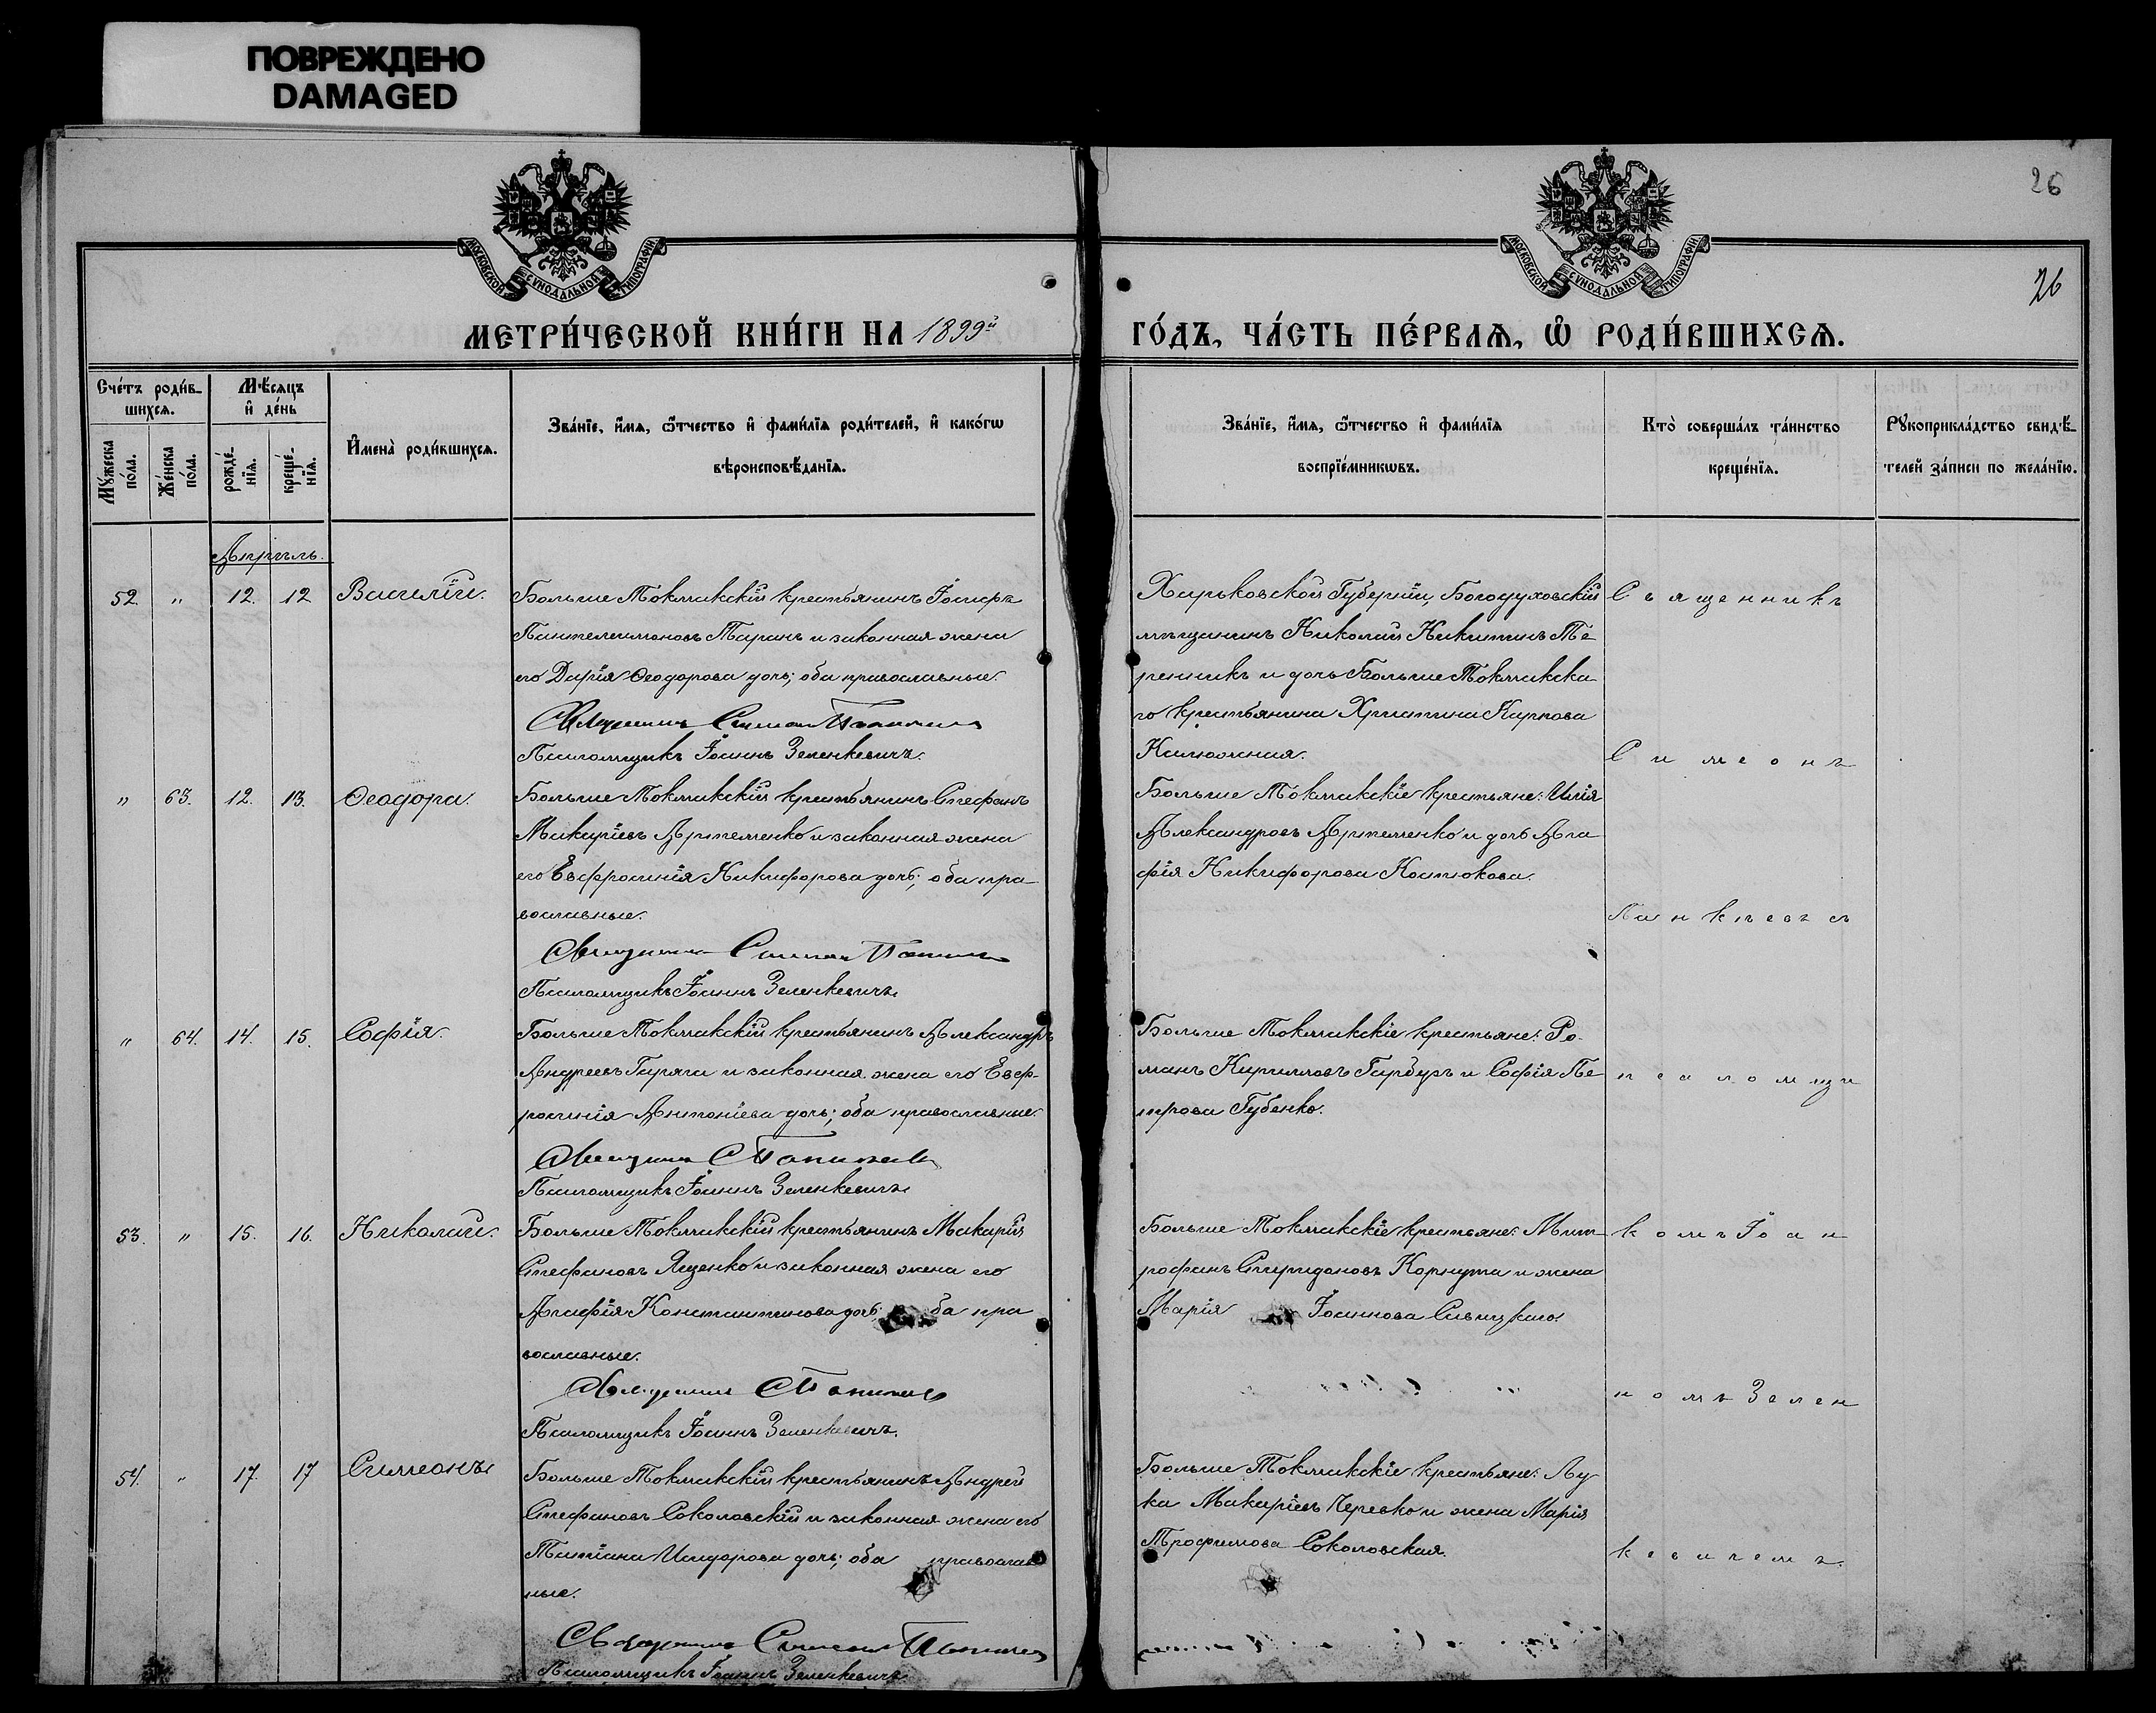 ПОВРЕЖДЕНО
DAMAGED
26
26
МОСКОВСКОЙ СѴНОДАЛЬНОЙ ТИПОГРАФІИ
МОСКОВСКОЙ СѴНОДАЛЬНОЙ ТИПОГРАФІИ
МЕТРИ́ЧЕСКОЙ КНИ́ГИ НА 1899й
ГО́ДЪ, ЧА́СТЬ ПЕ́РВАѦ, Ѡ҆ РОДИ́ВШИХСѦ.
Сче́тъ роди́в-
шихсѧ.
Мꙋ́жеска по́ла.
Же́нска по́ла.
Мѣ́сѧцъ
и҆ де́нь
рожде́-
нїѧ.
креще́-
нїѧ.
И҆мена̀ роди́вшихсѧ.
Зва́нїе, и҆́мѧ, ѻ҆́тчество и҆ фами́лїѧ роди́телей, и҆ како́гѡ
вѣроисповѣ́данїѧ.
Зва́нїе, и҆́мѧ, ѻ҆́тчество и҆ фами́лїѧ
воспрїе́мникѡвъ.
Кто̀ соверша́лъ та́инство
креще́нїѧ.
Рꙋкоприкла́дство свидѣ́-
телей за́писи по жела́нїю.
Апрѣль.
52. " 12. 12 Василій.
Больше Токмакскій крестьянинъ Іосифъ
Пантелеимоновъ Таранъ и законная жена
его Дарія Ѳеодорова дочь; оба православные.
Священникъ Симеон
Псаломщикъ Іоаннъ Зеленкевичъ.
Харьковской Губерніи, Богодуховскій
мѣщанинъ Николай Никитинъ Те-
ренникъ и дочь Больше Токмакска-
го крестьянина Христина Карпова
Калюжная.
" 63. 12. 13. Ѳеодора.
Больше Токмакскій крестьянинъ Стефанъ
Макаріевъ Артеменко и законная жена
его Евфросинія Никифорова дочь; оба пра-
вославные.
Священникъ Симеон
Псаломщикъ Іоаннъ Зеленкевичъ
Больше Токмакскіе крестьяне: Илія
Александровъ Артеменко и дочь Ага-
фія Никифорова Костюкова.
" 64. 14. 15. Софія.
Больше Токмакскій крестьянинъ Александръ
Андреевъ Гиряга и законная жена его Евф-
росинія Антоніева дочь; оба православные.
Священникъ
Псаломщикъ Іоаннъ Зеленкевичъ
Больше Токмакскіе крестьяне: Ро-
манъ Кирилловъ Гарбузъ и Софія Пе-
трова Губенко.
53. " 15. 16. Николай.
Больше Токмакскій крестьянинъ Макарій
Стефановъ Яценко и законная жена его
Агафія Константинова дочь; оба пра
вославные.
Священникъ
Псаломщикъ Іоаннъ Зеленкевичъ.
Больше Токмакскіе крестьяне: Мит-
рофанъ Спиридоновъ и жена
Марія Іоаннова
54. " 17. 17 Симеонъ
Больше Токмакскій крестьянинъ Андрей
Стефановъ Соколовскій и законная жена его
Татіана Исидорова дочь; оба православ
ные.
Священникъ Симеон
Псаломщикъ Іоаннъ Зеленкевичъ
Больше Токмакскіе крестьяне: Лу-
ка Макаріевъ Черевко и жена Марія
Трофимова Соколовская.
Священникъ
Симеонъ
съ
псаломщи
комъ Іоан
номъ Зелен
кевичемъ.